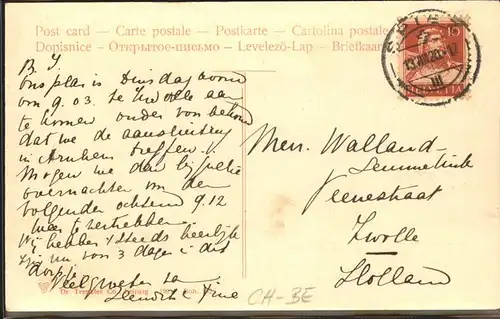 Post card – Carte postale – Postkarte – Cartolina postale
Dopisnice – Открытое-письмо – Levelező-Lap – Briefkaart
SPIEZ
13.VIII.20.-12
III
10
HELVETIA
B. J.
Ons plan is Dinsdagavond
om 9.03. te Zwolle aan
te komen onder voorbehoud
dat we de aansluiting
in Arnhem treffen.
Mogen we dan bij jullie
overnachten om den
volgenden ochtend 9.12
weer te vertrekken.
Wij hebben 't steeds heerlijk
Zijn nu voor 3 dagen in dit
dorpje
Veel groeten van
Hendrik & Tine
Mevr. Walland-
Semmelink
Veenestraat
Zwolle
Holland
Dr. Trenkler Co., Leipzig
CH-BE